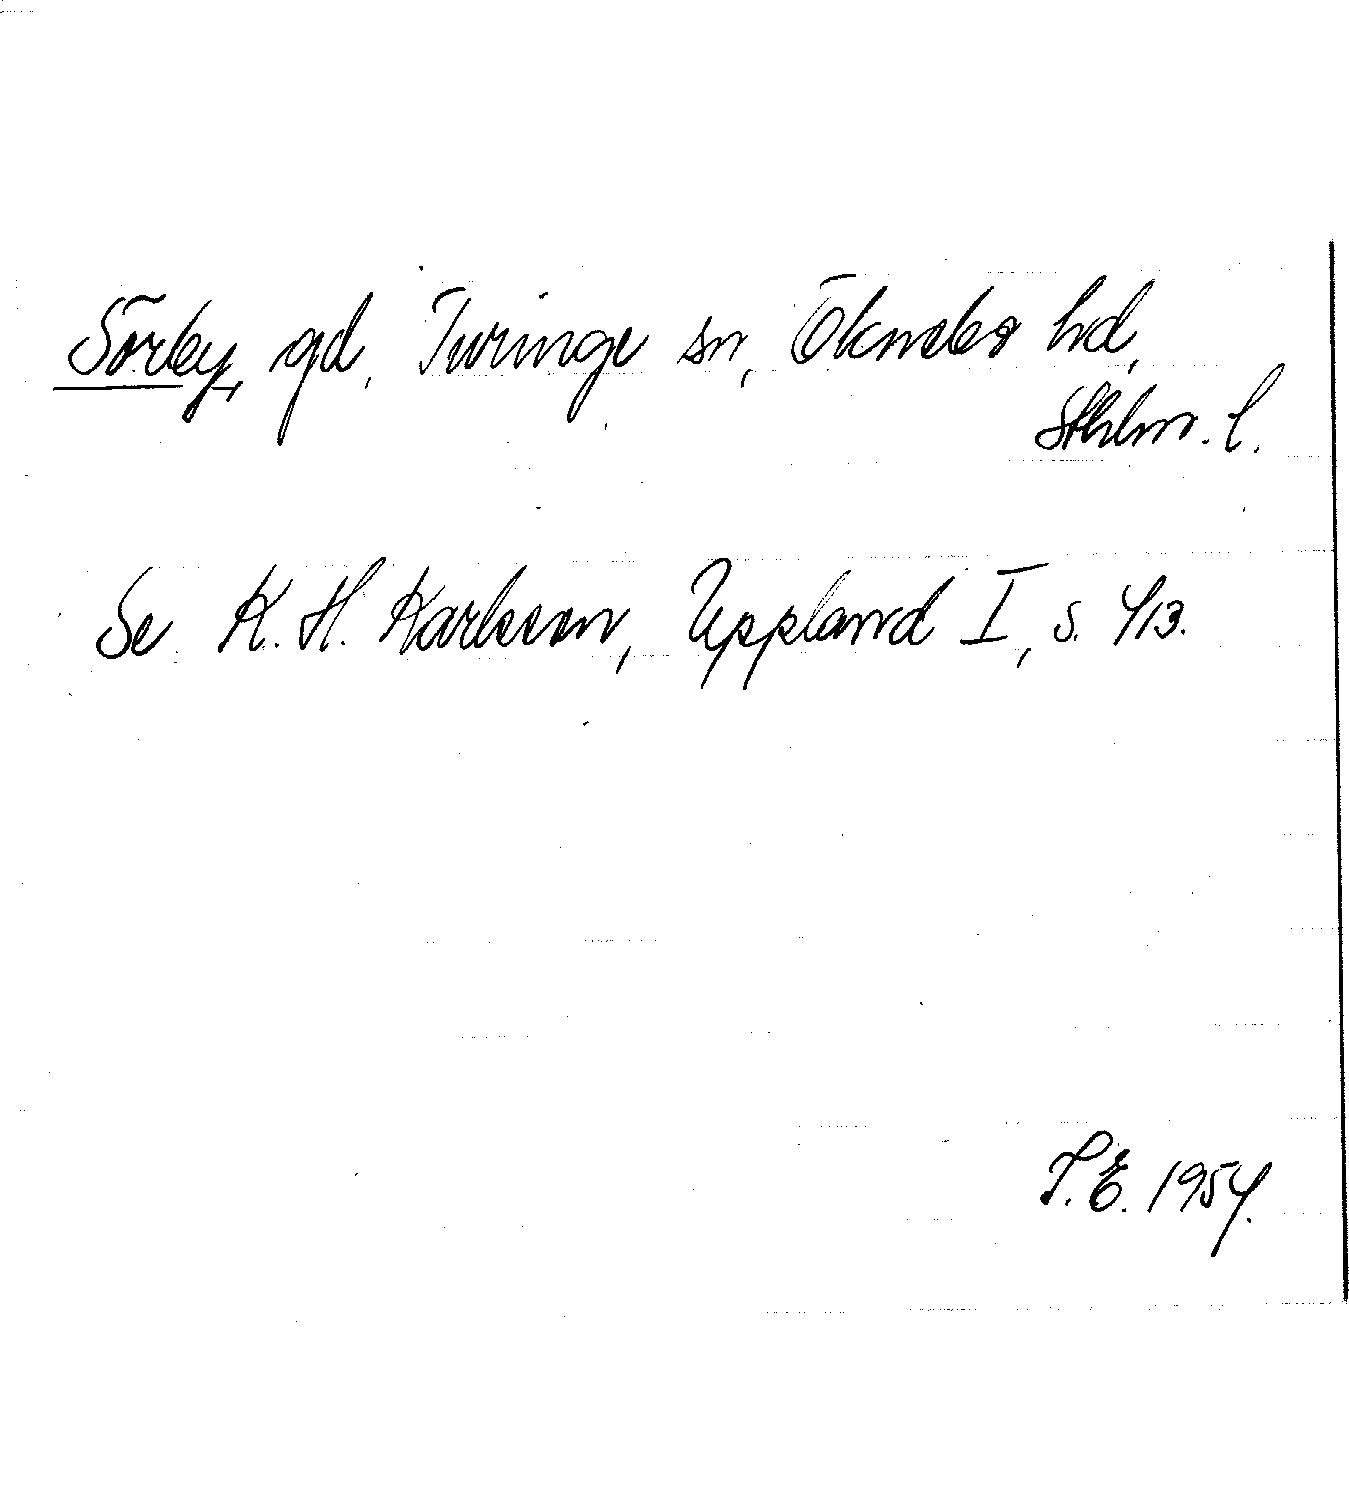 Sörby, gd, Turinge sn, Öknebo hd,
Sthlm. l.
Se K. H. Karlsson, Uppland I, s. 413.
S. E. 1954.